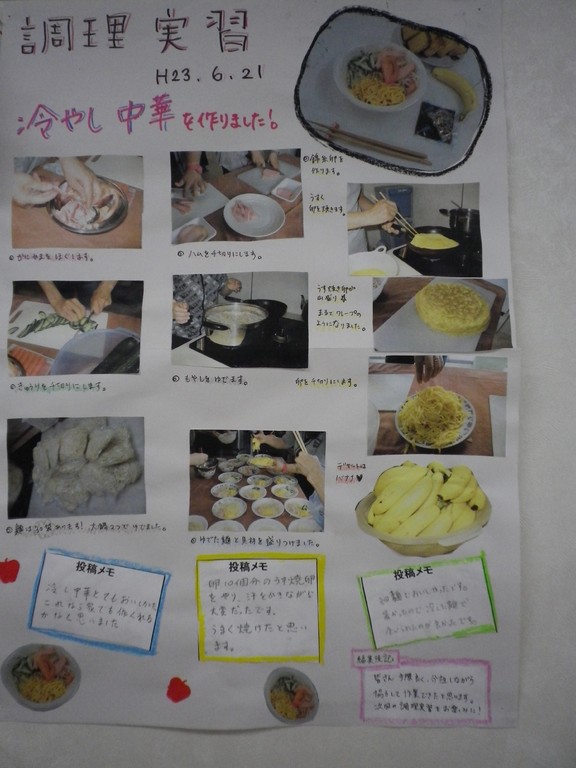 調理実習
H23.6.21
冷やし中華を作りました!
④錦糸卵を
作ります。
うすく
卵を焼きます。
②ハムを千切りにします。
うす焼き卵が
山盛り
まるでクレープの
ようになりました。
③きゅうりを千切りにします。
もやしをゆでます。
卵を千切りにします。
デザートは
バナナ♥
ゆでた麺と具材を盛りつけました。
投稿メモ
冷し中華とてもおいしかった
これなら家でも作れる
かなと思いました
投稿メモ
卵40個分のうす焼卵
を作り、汗をかきながら
大変だったです。
うまく焼けたと思い
ます。
投稿メモ
編集後記
皆さん、手際良く、分担しながら
協力して作業できたと思います。
次回の調理実習もお楽しみに!